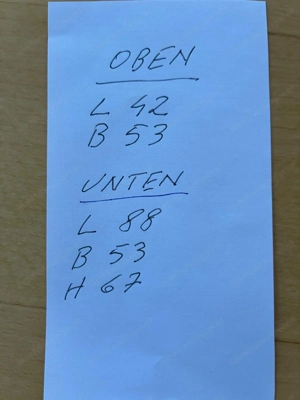 OBEN
L 42
B 53
UNTEN
L 88
B 53
H 67